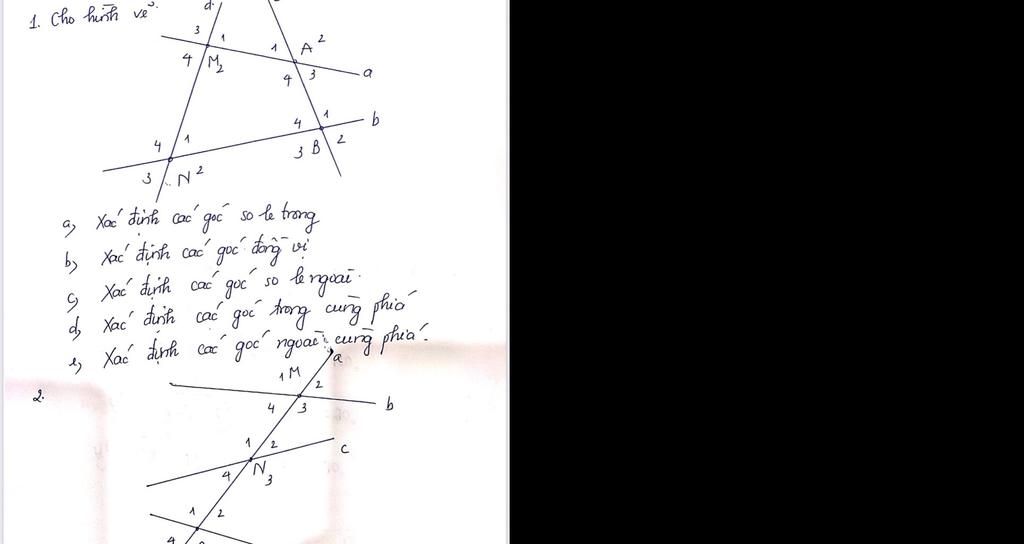 1. Cho hình vẽ.
d
3 1 1 A 2
4 M2 4 3 a
4 1 b
4 1 3 B 2
3 N 2
a, Xác định các góc so le trong
b, Xác định các góc đồng vị
c, Xác định các góc so le ngoài.
d, Xác định các góc trong cùng phía
e, Xác định các góc ngoài cùng phía.
a
2.
1 M 2
4 3 b
1 2 c
4 N 3
1 2
4